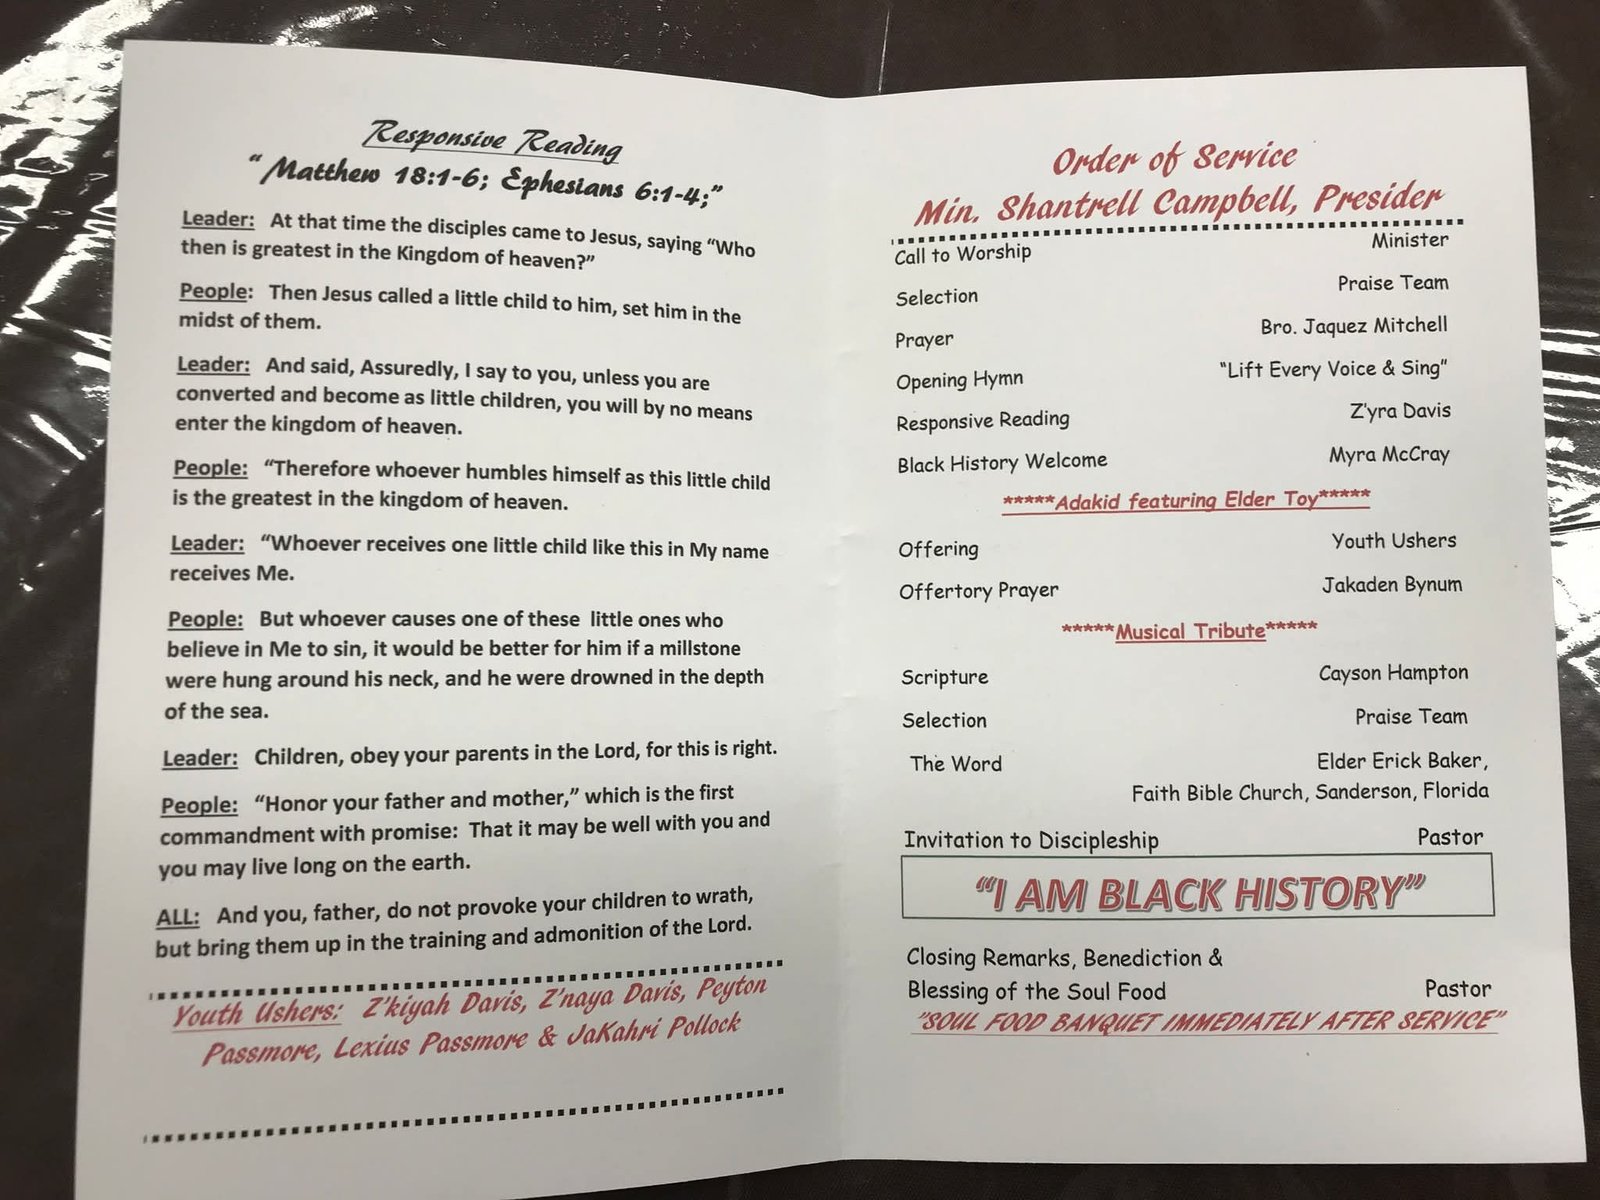 Responsive Reading
"Matthew 18:1-6; Ephesians 6:1-4;"
Leader: At that time the disciples came to Jesus, saying "Who
then is greatest in the Kingdom of heaven?"
People: Then Jesus called a little child to him, set him in the
midst of them.
Leader: And said, Assuredly, I say to you, unless you are
converted and become as little children, you will by no means
enter the kingdom of heaven.
People: "Therefore whoever humbles himself as this little child
is the greatest in the kingdom of heaven.
Leader: "Whoever receives one little child like this in My name
receives Me.
People: But whoever causes one of these little ones who
believe in Me to sin, it would be better for him if a millstone
were hung around his neck, and he were drowned in the depth
of the sea.
Leader: Children, obey your parents in the Lord, for this is right.
People: "Honor your father and mother," which is the first
commandment with promise: That it may be well with you and
you may live long on the earth.
ALL: And you, father, do not provoke your children to wrath,
but bring them up in the training and admonition of the Lord.
Youth Ushers: Z'kiyah Davis, Z'naya Davis, Peyton
Passmore, Lexius Passmore & JaKahri Pollock
Order of Service
Min. Shantrell Campbell, Presider
Call to Worship Minister
Selection Praise Team
Prayer Bro. Jaquez Mitchell
Opening Hymn "Lift Every Voice & Sing"
Responsive Reading Z'yra Davis
Black History Welcome Myra McCray
*****Adakid featuring Elder Toy*****
Offering Youth Ushers
Offertory Prayer Jakaden Bynum
*****Musical Tribute*****
Scripture Cayson Hampton
Selection Praise Team
The Word Elder Erick Baker,
Faith Bible Church, Sanderson, Florida
Invitation to Discipleship Pastor
"I AM BLACK HISTORY"
Closing Remarks, Benediction &
Blessing of the Soul Food Pastor
"SOUL FOOD BANQUET IMMEDIATELY AFTER SERVICE"